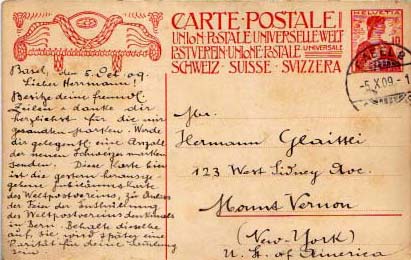 CARTE POSTALE
UNION POSTALE UNIVERSELLE WELT
POSTVEREIN UNIONE POSTALE UNIVERSALE
SCHWEIZ SUISSE SVIZZERA
HELVETIA
10
5.X.09
Basel, den 5. Oct 09.
Lieber Herrmann!
Besitze deine freundl.
Zeilen & danke dir
herzlichst für die mir
gesandten Marken. Werde
dir gelegentl. eine Anzahl
der neuen Schweizer marken
senden. Diese Karte hier
ist die gestern herausge-
gebene Jubiläumskarte
des Weltpostvereins, zur
Feier der Enthüllung
des Weltpostvereins denkmals
in Bern. Behalte dieselbe
auf, sie wird später eine
Rarität für deine Sammlung
sein.
Mr.
Hermann
123 West Sidney Ave.
Mount Vernon
(New-York)
U. St. of America